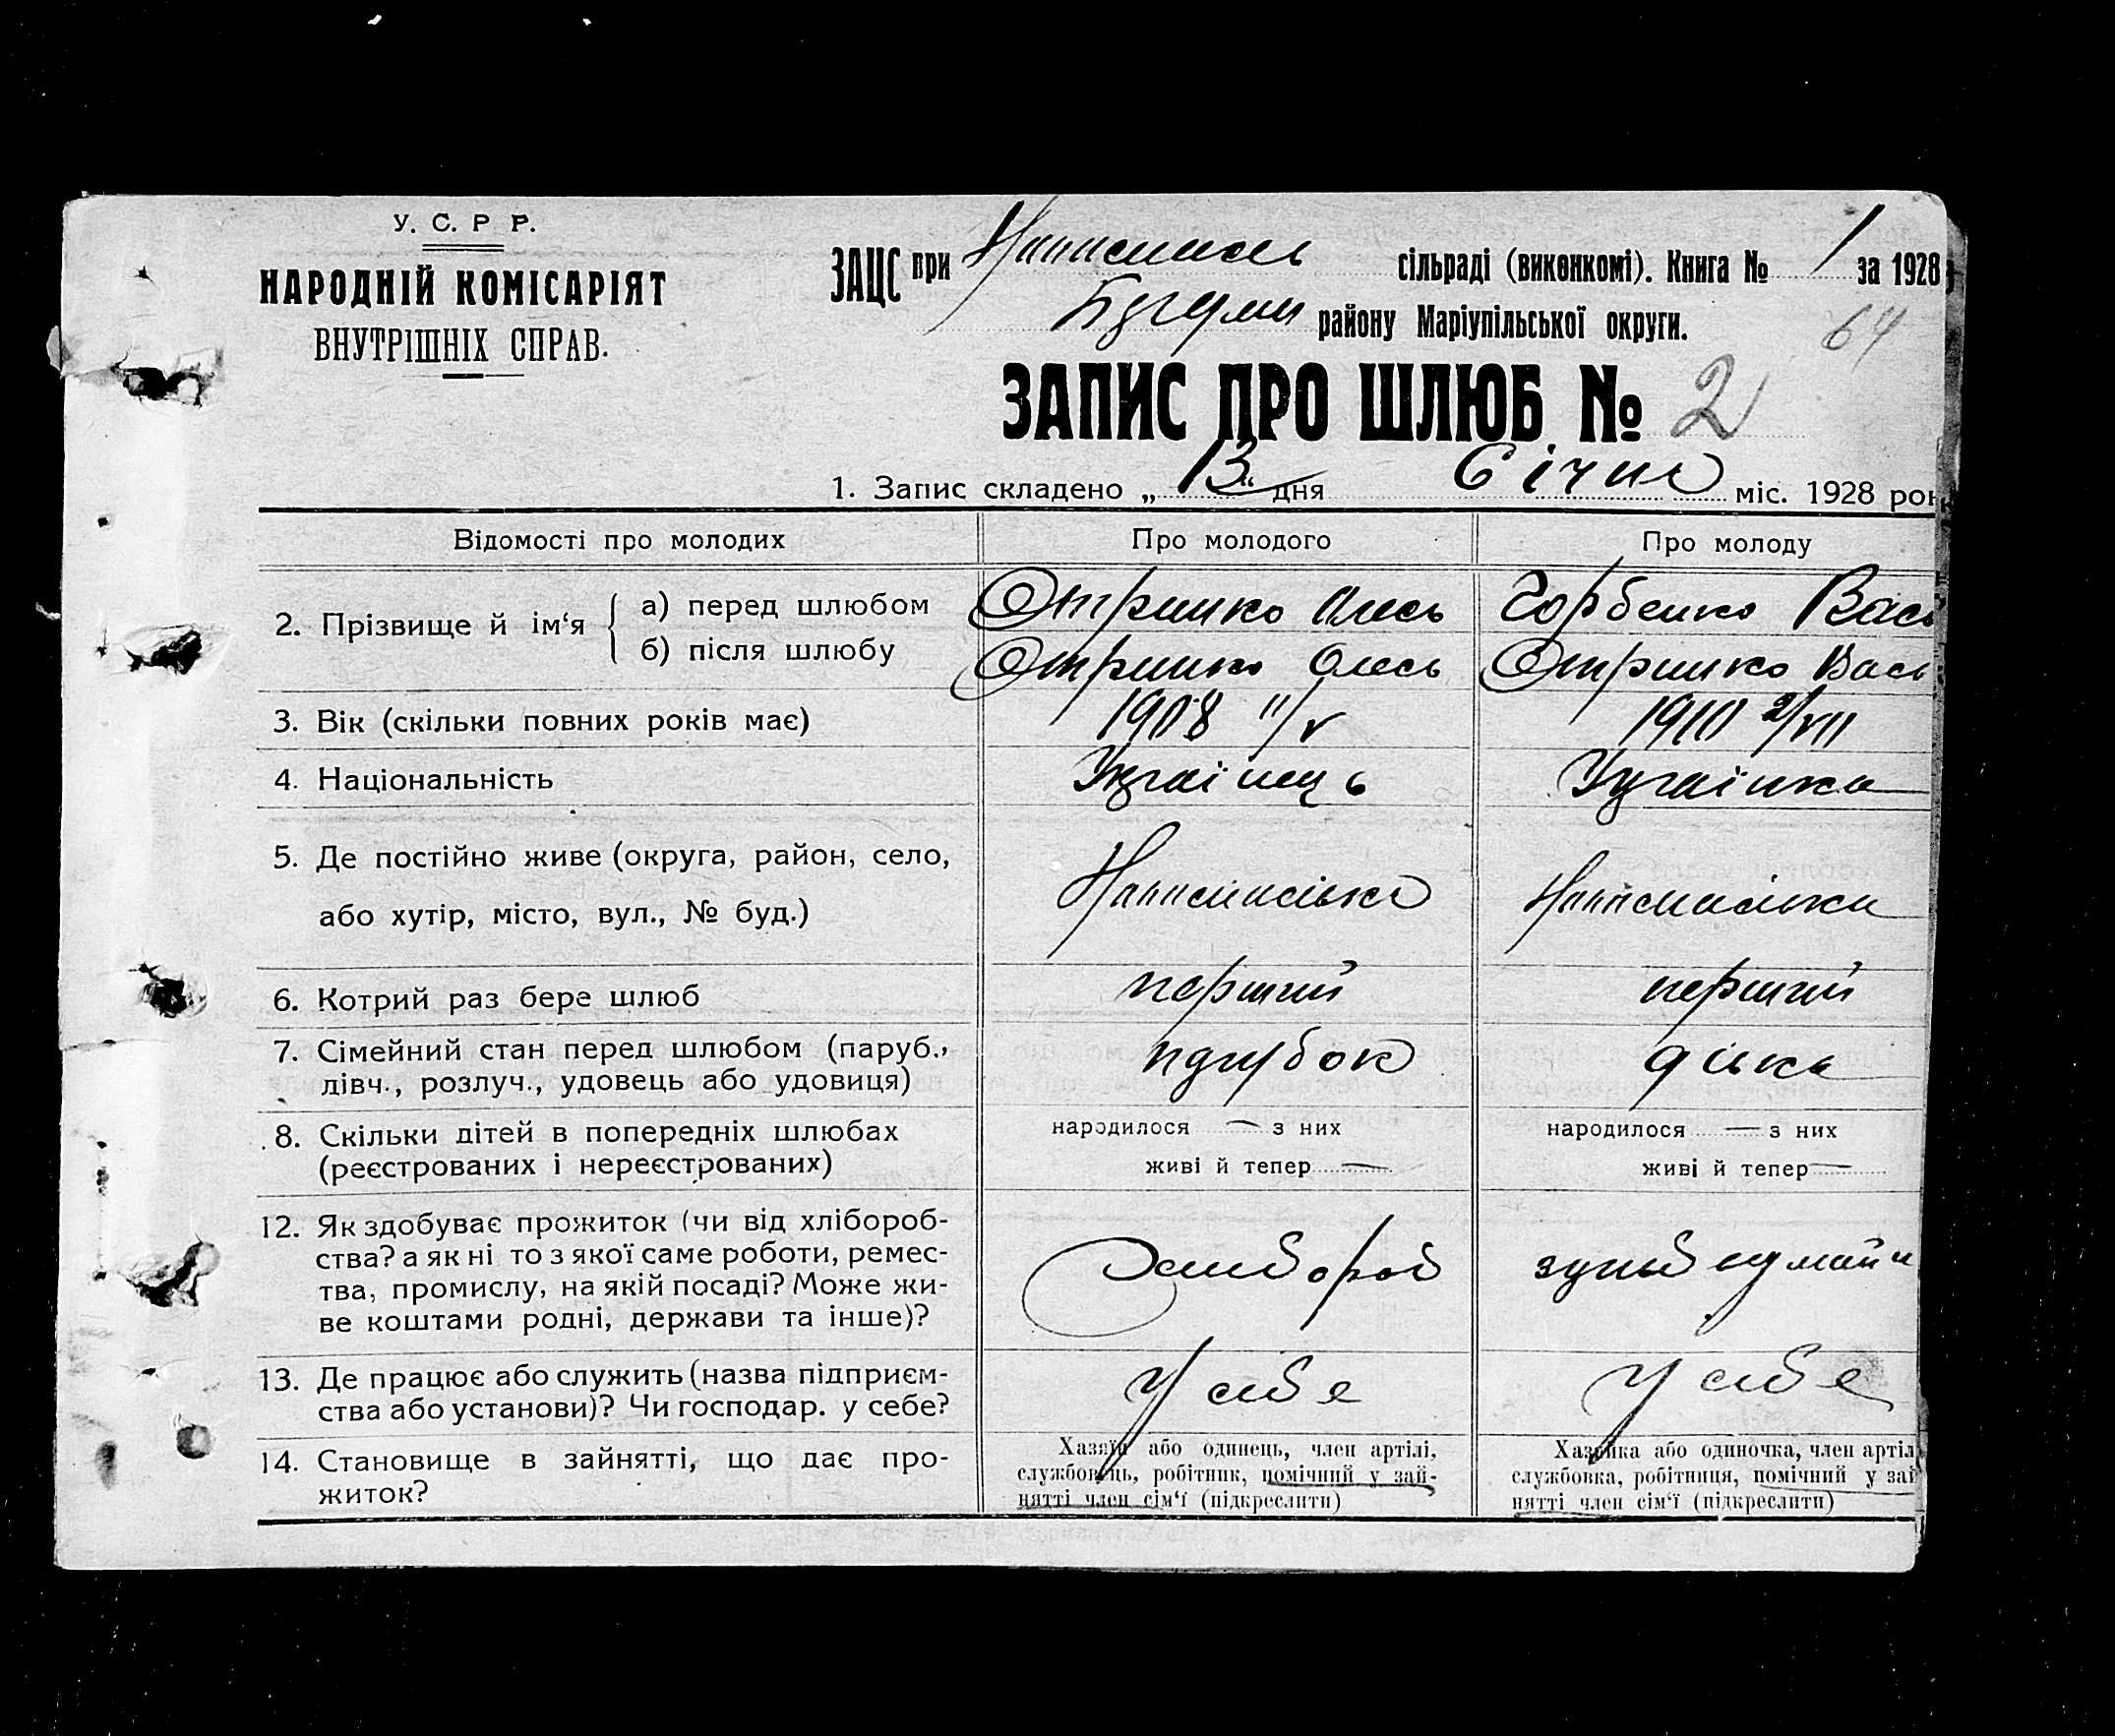 У. С. Р Р.
НАРОДНІЙ КОМІСАРІЯТ
ВНУТРІШНІХ СПРАВ.
ЗАЦС при сільраді (виконкомі). Книга № 1 за 1928
району Маріупільської округи.
64
ЗАПИС ПРО ШЛЮБ № 2
1. Запис складено „ 13 “ дня Січня міс. 1928 рок
Відомості про молодих
Про молодого
Про молоду
2. Прізвище й ім‘я
а) перед шлюбом
Отришко Олесь
Горбенко Вась
б) після шлюбу
Отришко Олесь
Отришко Вась
3. Вік (скільки повних років має)
1908 11/V
1910 2/VII
4. Національність
Украінець
Украінка
5. Де постійно живе (округа, район, село,
або хутір, місто, вул., № буд.)
6. Котрий раз бере шлюб
перший
перший
7. Сімейний стан перед шлюбом (паруб.,
дівч., розлуч., удовець або удовиця)
парубок
дівка
8. Скільки дітей в попередніх шлюбах
(реєстрованих і нереєстрованих)
народилося — з них
живі й тепер —
народилося — з них
живі й тепер —
12. Як здобуває прожиток (чи від хлібороб-
ства? а як ні то з якої саме роботи, ремес-
тва, промислу, на якій посаді? Може жи-
ве коштами родні, держави та інше)?
13. Де працює або служить (назва підприєм-
ства або установи)? Чи господар. у себе?
У себе
У себе
14. Становище в зайнятті, що дає про-
житок?
Хазяїн або одинець, член артілі,
службовець, робітник, помічний у зай-
нятті член сім‘ї (підкреслити)
Хазяйка або одиночка, член артіл
службовка, робітниця, помічний у зай
нятті член сім‘ї (підкреслити)